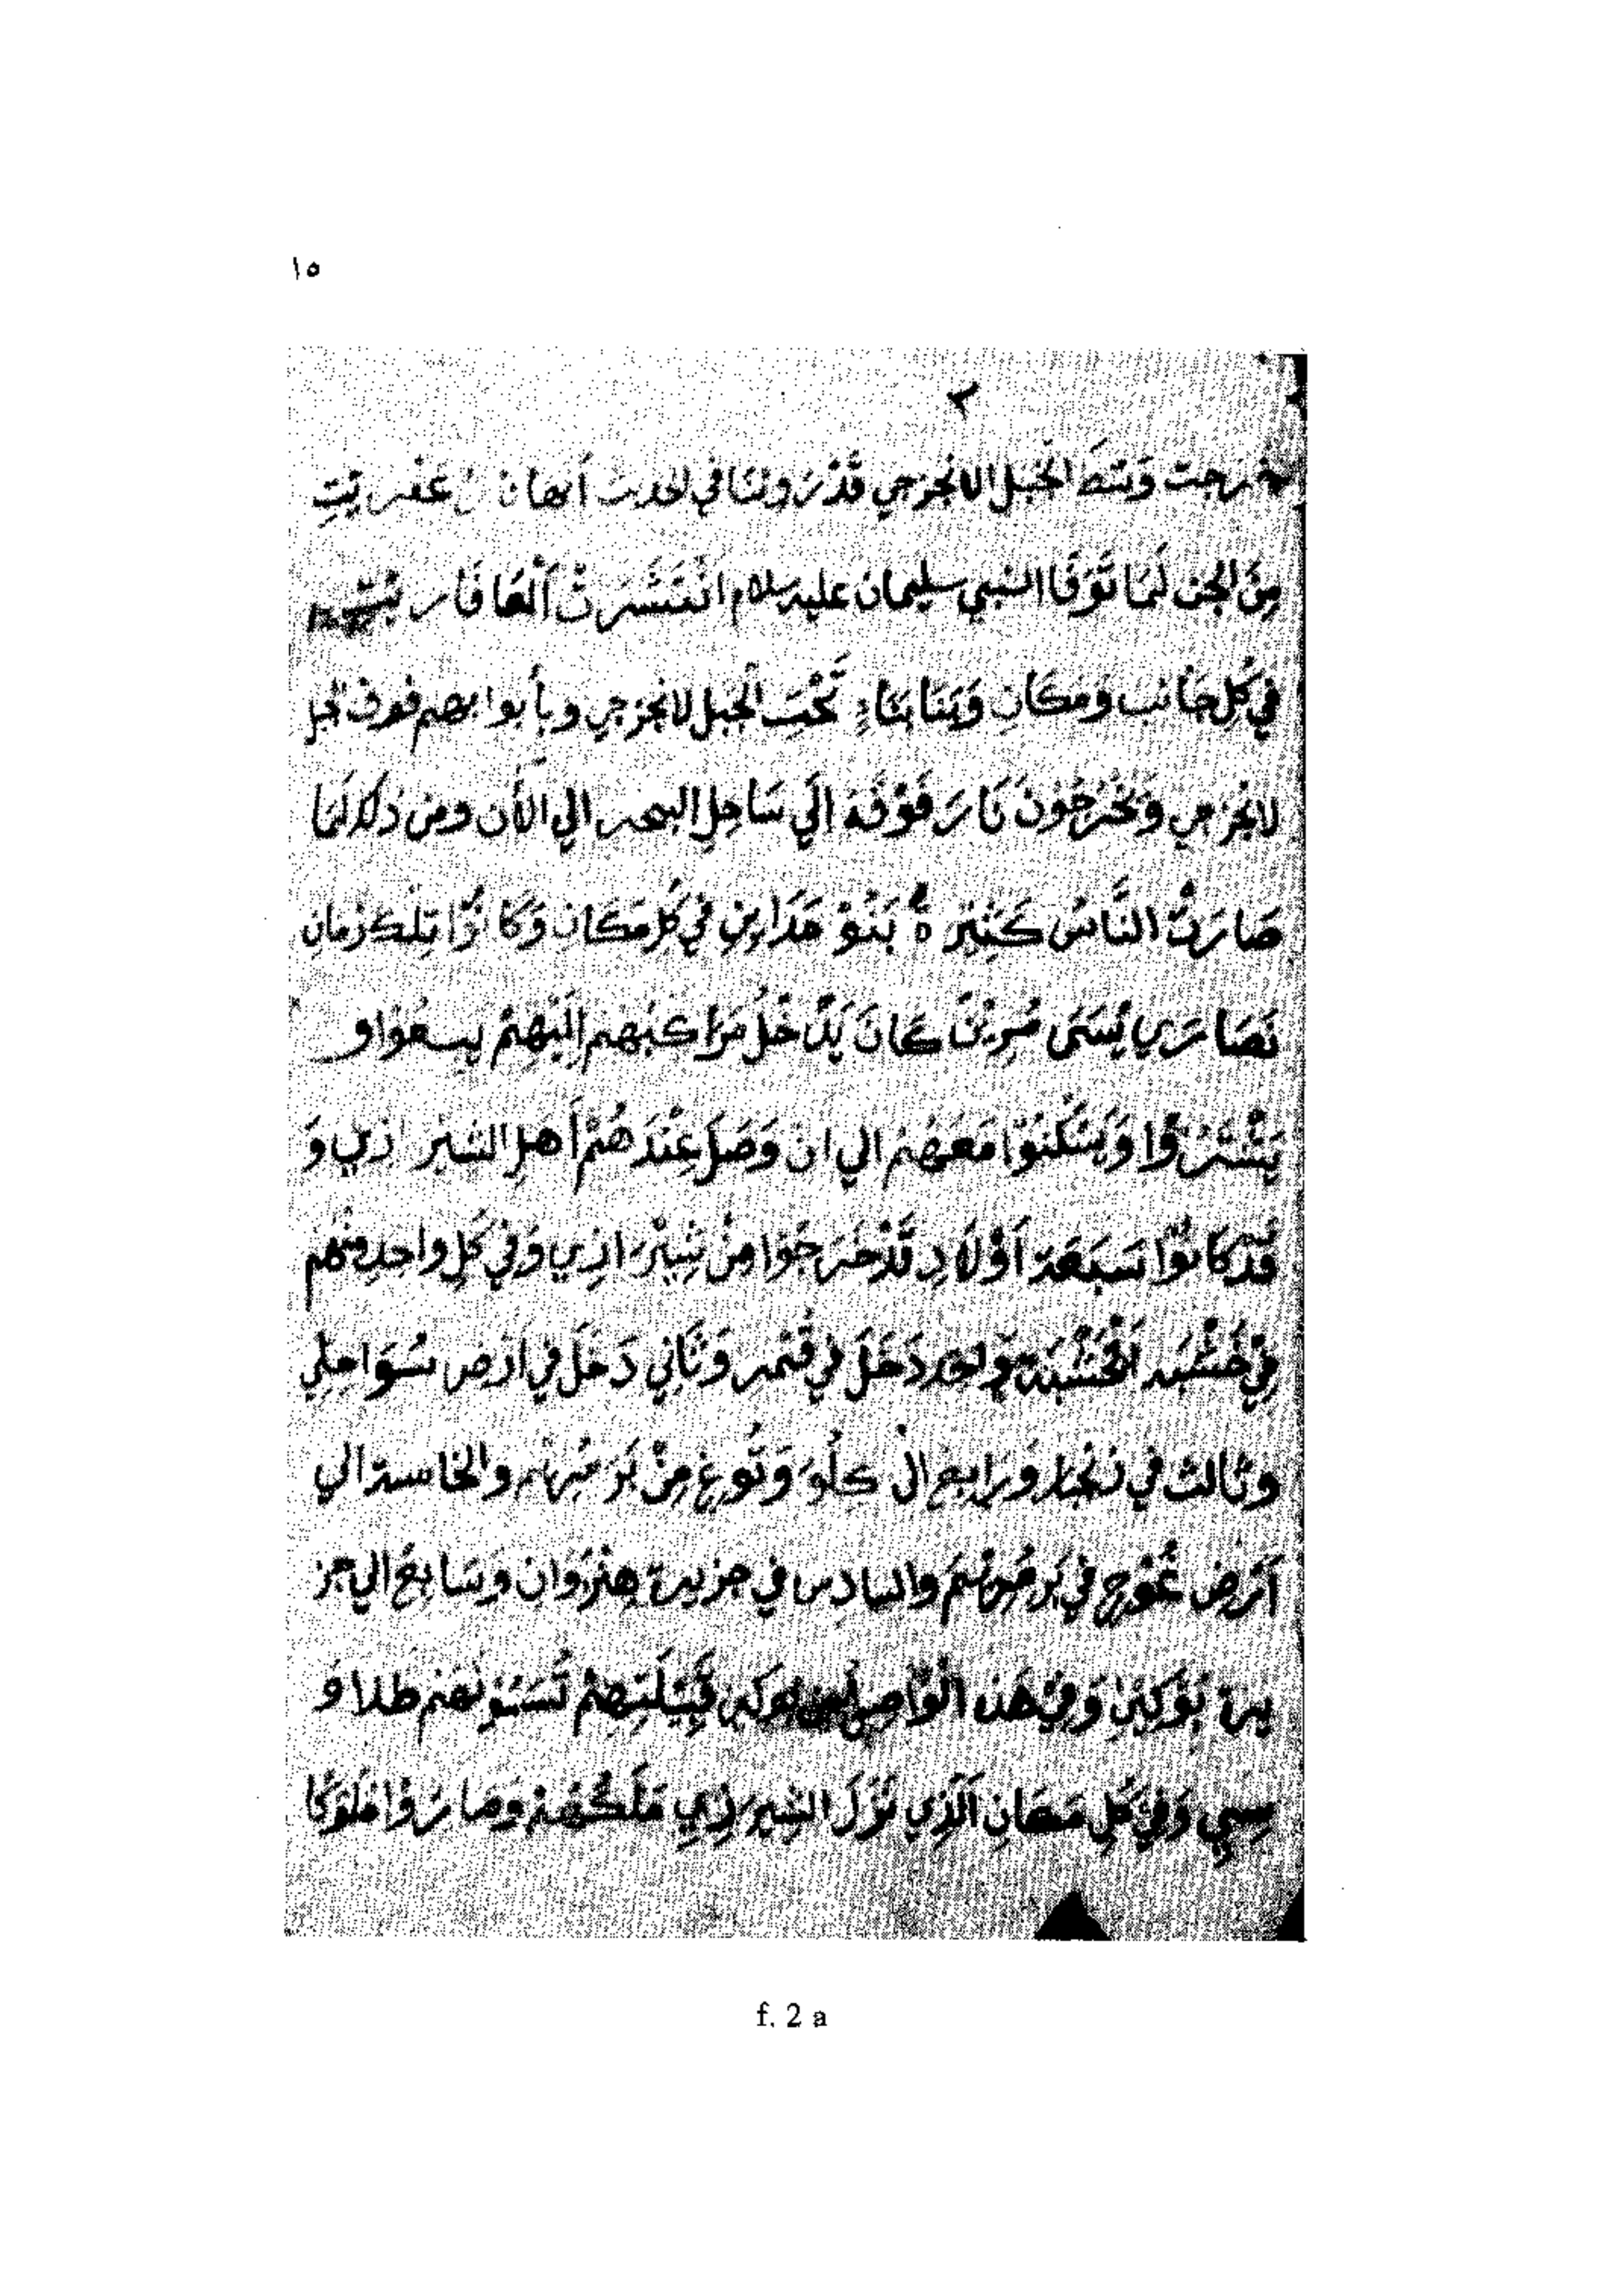 ١٥
٢
خرجت وسط الجبل الانجزجي قَدْ رَوينَا في الحديث أنها عفريت
مِنَ الجن لَمَّا تَوَفَّا النبي سليمان عليه سلام انْتَشَرَتْ ٱلعَافَاريت
في كُلِ جَانب وَمَكَانِ وَبَنَا بِنَاءً تَحْتَ الجبل لانجزجي وبأبوابهم فوق جبل
لانجزجي وَيُخْرِجُونَ نَارَ فَوْقَهُ إِلَي سَاحِلِ البحر الي الأن ومن ذلك لَمَا
صَارَتْ النَّاسُ كَثِيْرَةٌ بَنُوْ مَدَاينِ في كُلِ مَكَان وَكَانُوْا تِلْكَ زمانِ
نَصَارَي يُسَمَى كَانَ يَدْخُلُ مَرَاكِبُهم إِلَيْهِمْ يبيعُوْا و
يَشْتَرُوْا وَيَسْكُنُوْا مَعَهُمْ الي ان وَصَلَ عِنْدَهُمْ أهل الشيرازي وَ
قد كَانُوْا سَبَعَة أَوْلَادِ قَدْ خَرَجُوْا مِنْ شِيْرَازِي وَفِي كُلِ واحدِ منهم
فِي خَشَبَه وَاحد دَخَلَ في قُمر وَثَانِي دَخَلَ في ارْض سُوَاحِلِي
وثَالث في زنجبار وَرَابع الى كِلْوَ وَتُوغِ مِنْ بَر مُرِيْم والخامسة الي
آرْض غُوْج في بَر مُرِيْمَ والسادس في جزيرة هِنْزُوَان وَسَابِعُ الي جز
يرة بُوَكِيْنِ وَفِي هَذ الْوَاصِلِيْن قَبِيْلَتِهِمْ تُسَمُوْنَهُمْ طلا وَ
سِيي وَفِي كُلِ مَكَانِ اَلَّذِي نَزَلَ الشيرازي مَلَكُهُ وَصَارُوْا مُلُوكًا
f. 2 a